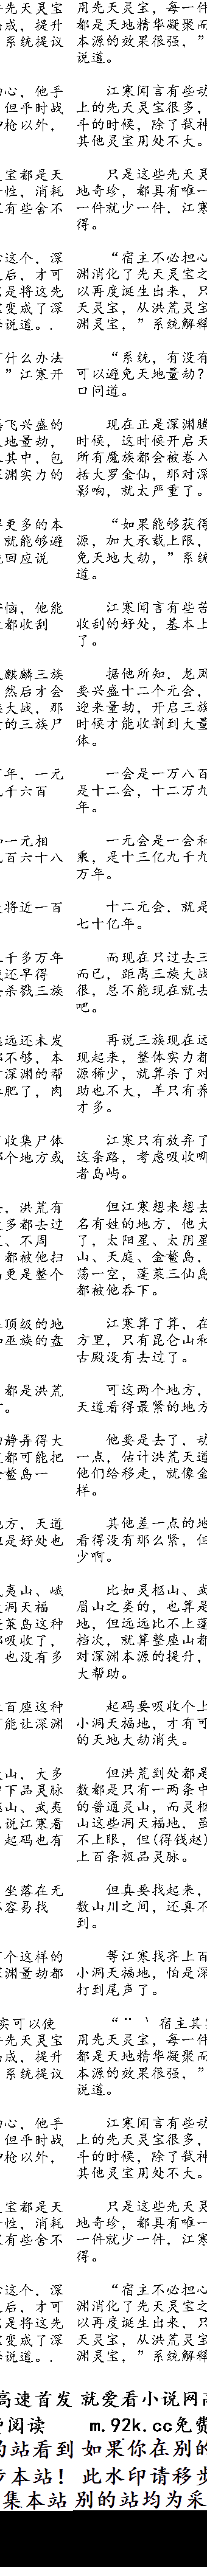 先天灵宝
成，提升
系统提议
心，他手
但平时战
中枪以外，
宝都是天
性，消耗
有些舍不
这个，深
后，才可
是将这先
变成了深
释说道。.
什么办法
”江寒开
腾飞兴盛的
地量劫，
其中，包
渊实力的
得更多的本
就能够避
回应说
恼，他能
都收刮
麒麟三族
然后才会
大战，那
的三族尸
年，一元
九千六百
一元相
九百六十八
将近一百
千多万年
还早得
杀戮三族
远还未发
不够，本
深渊的帮
肥了，肉
收集尸体
个地方或
，洪荒有
多都去过
、不周
都被他扫
更是整个
顶级的地
巫族的盘
都是洪荒
。
静弄得大
都可能把
金鳌岛一
方，天道
是好处也
夷山、峨
洞天福
莱岛这种
吸收了，
也没有多
百座这种
能让深渊
山，大多
下品灵脉
山、武夷
说江寒看
起码也有
坐落在无
容易找
个这样的
渊量劫都
实可以使
先天灵宝
成，提升
系统提议
心，他手
但平时战
中枪以外，
宝都是天
性，消耗
有些舍不
这个，深
后，才可
是将这先
变成了深
释说道。.
高速首发
阅读
的站看到
步本站！
集本站
用先天灵宝，每一件
都是天地精华凝聚而
本源的效果很强，”
说道。
江寒闻言有些动
上的先天灵宝很多，
斗的时候，除了弑神
其他灵宝用处不大。
只是这些先天灵
地奇珍，都具有唯一
一件就少一件，江寒
得。
“宿主不必担心
渊消化了先天灵宝之
以再度诞生出来，只
天灵宝，从洪荒灵宝
渊灵宝，”系统解释
“系统，有没有
可以避免天地量劫？
口问道。
现在正是深渊腾
时候，这时候开启天
所有魔族都会被卷入
括大罗金仙，那对深
影响，就太严重了。
“如果能够获得
源，加大承载上限，
免天地大劫，”系统
道。
江寒闻言有些苦
收刮的好处，基本上
了。
据他所知，龙凤
要兴盛十二个元会，
迎来量劫，开启三族
时候才能收割到大量
体。
一会是一万八百
是十二会，十二万九
年。
一元会是一会和
乘，是十三亿九千九
万年。
十二元会，就是
七十亿年。
而现在只过去三
而已，距离三族大战
很，总不能现在就去
吧。
再说三族现在远
现起来，整体实力都
源稀少，就算杀了对
助也不大，羊只有养
才多。
江寒只有放弃了
这条路，考虑吸收哪
者岛屿。
但江寒想来想去
名有姓的地方，他大
了，太阳星、太阴星
山、天庭、金鳌岛，
荡一空，蓬莱三仙岛
都被他吞下。
江寒算了算，在
方里，只有昆仑山和
古殿没有去过了。
可这两个地方，
天道看得最紧的地方
他要是去了，动
一点，估计洪荒天道
他们给移走，就像金
样。
其他差一点的地
看得没有那么紧，但
少啊。
比如灵柩山、武
眉山之类的，也算是
地，但远远比不上蓬
档次，就算整座山都
对深渊本源的提升，
大帮助。
起码要吸收个上
小洞天福地，才有可
的天地大劫消失。
但洪荒到处都是
数都是只有一两条中
的普通灵山，而灵柩
山这些洞天福地，虽
不上眼，但(得钱赵)
上百条极品灵脉。
但真要找起来，
数山川之间，还真不
到。
等江寒找齐上百
小洞天福地，怕是深
打到尾声了。
“¨ 丶宿主其实
用先天灵宝，每一件
都是天地精华凝聚而
本源的效果很强，”
说道。
江寒闻言有些动
上的先天灵宝很多，
斗的时候，除了弑神
其他灵宝用处不大。
只是这些先天灵
地奇珍，都具有唯一
一件就少一件，江寒
得。
“宿主不必担心
渊消化了先天灵宝之
以再度诞生出来，只
天灵宝，从洪荒灵宝
渊灵宝，”系统解释
就爱看小说网
m.92k.cc免费
如果你在别的
此水印请移步
别的站均为采